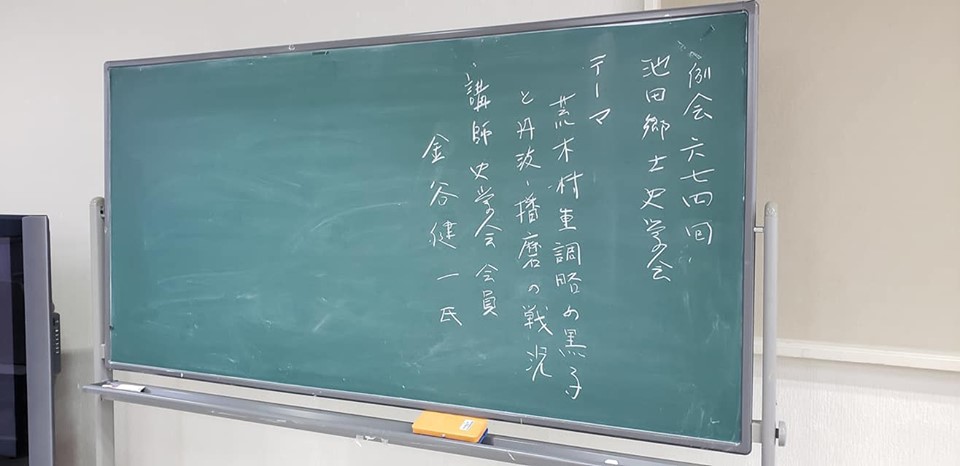 例会六七四回
池田郷士史学会
テーマ
荒木村重調略の黒子
と丹波・播磨の戦況
講師 史学会 会員
金谷健一氏